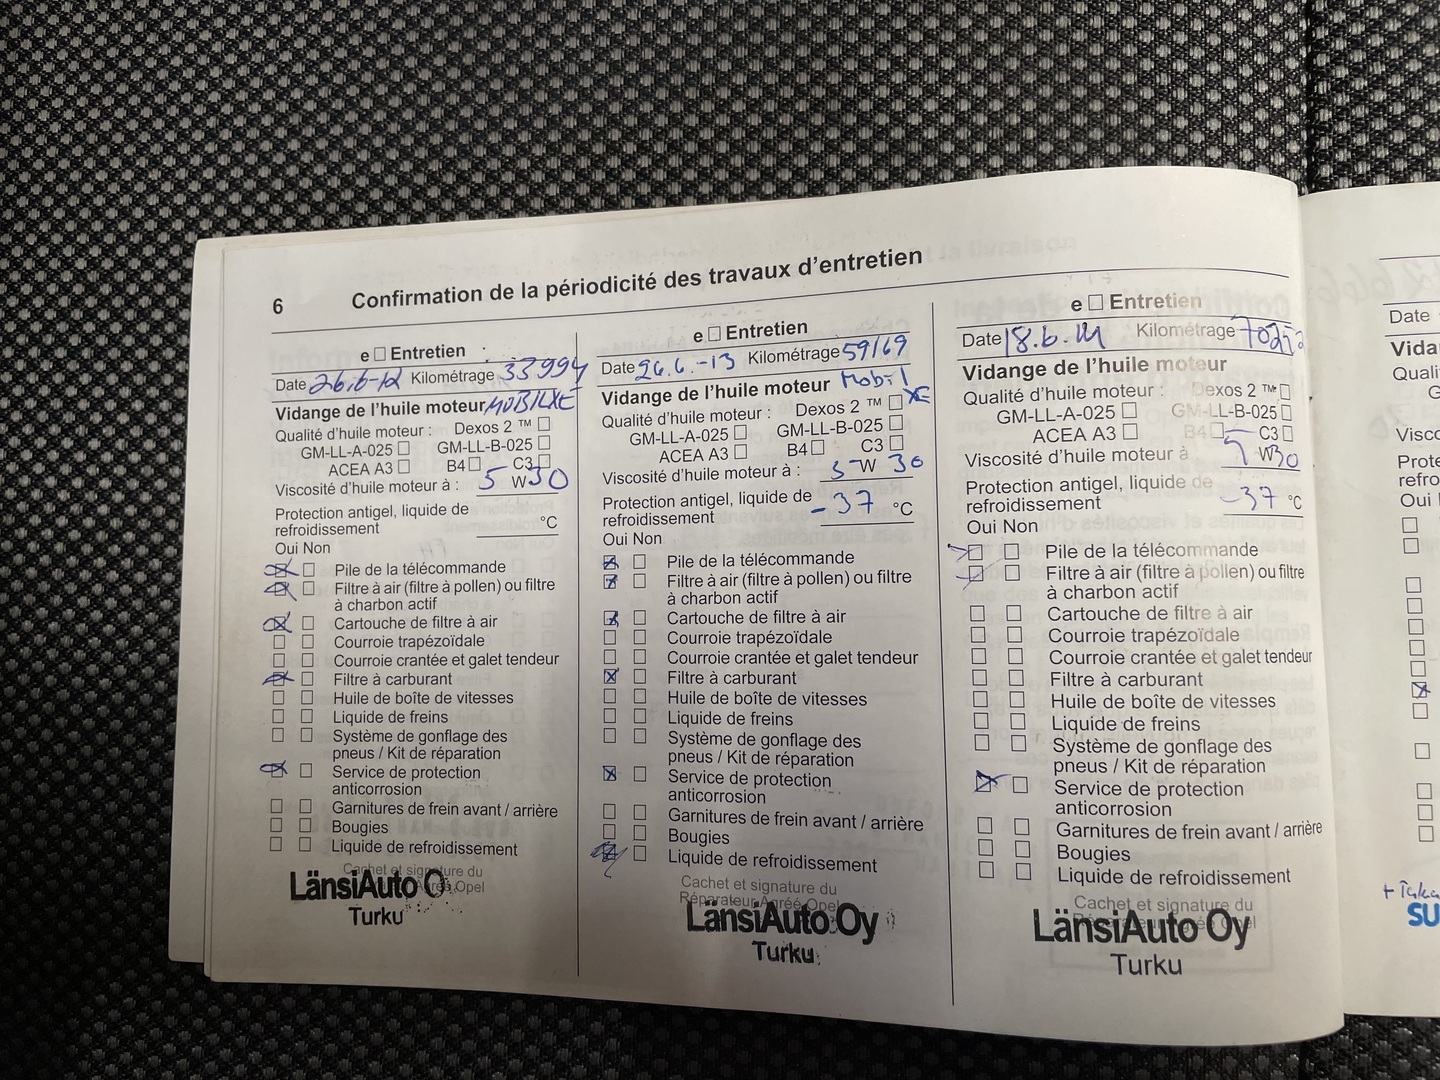 6 Confirmation de la périodicité des travaux d'entretien
e Entretien
Date 26.6-12 Kilométrage 33994
Vidange de l'huile moteur
Qualité d'huile moteur : Dexos 2 ™
GM-LL-A-025 GM-LL-B-025
ACEA A3 B4 C3
Viscosité d'huile moteur à : 5 W 30
Protection antigel, liquide de
refroidissement °C
Oui Non
Pile de la télécommande
Filtre à air (filtre à pollen) ou filtre
à charbon actif
Cartouche de filtre à air
Courroie trapézoïdale
Courroie crantée et galet tendeur
Filtre à carburant
Huile de boîte de vitesses
Liquide de freins
Système de gonflage des
pneus / Kit de réparation
Service de protection
anticorrosion
Garnitures de frein avant / arrière
Bougies
Liquide de refroidissement
Cachet et signature du
LänsiAuto O
Opel
Turku
e Entretien
Date 26.6.-13 Kilométrage 59169
Vidange de l'huile moteur Mobil
Qualité d'huile moteur : Dexos 2 ™
GM-LL-A-025 GM-LL-B-025
ACEA A3 B4 C3
Viscosité d'huile moteur à : 5 W 30
Protection antigel, liquide de
refroidissement -37 °C
Oui Non
Pile de la télécommande
Filtre à air (filtre à pollen) ou filtre
à charbon actif
Cartouche de filtre à air
Courroie trapézoïdale
Courroie crantée et galet tendeur
Filtre à carburant
Huile de boîte de vitesses
Liquide de freins
Système de gonflage des
pneus / Kit de réparation
Service de protection
anticorrosion
Garnitures de frein avant / arrière
Bougies
Liquide de refroidissement
Cachet et signature du
Réparateur Agréé Opel
LänsiAuto Oy
Turku
e Entretien
Date 18.6.14 Kilométrage
Vidange de l'huile moteur
Qualité d'huile moteur : Dexos 2 ™
GM-LL-A-025 GM-LL-B-025
ACEA A3 B4 C3
Viscosité d'huile moteur à 5 W30
Protection antigel, liquide de
refroidissement -37 °C
Oui Non
Pile de la télécommande
Filtre à air (filtre à pollen) ou filtre
à charbon actif
Cartouche de filtre à air
Courroie trapézoïdale
Courroie crantée et galet tendeur
Filtre à carburant
Huile de boîte de vitesses
Liquide de freins
Système de gonflage des
pneus / Kit de réparation
Service de protection
anticorrosion
Garnitures de frein avant / arrière
Bougies
Liquide de refroidissement
Cachet et signature du
LänsiAuto Oy
Turku
Date
Vida
Quali
G
Visc
Prote
refro
Oui
SU